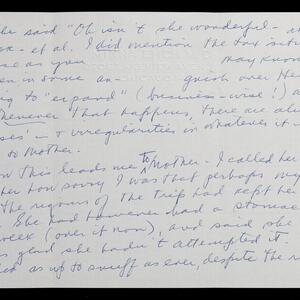 he said "Oh isn't she wonderful -
- et al. I did mention the tax
as you may know
en in borne an- guish over He
ng to "expand" (business-wise!) a
Whenever that happens, there are al
ses' - & irregularities in whatever it
to Mother.
this leads me to Mother - I called her
her how sorry I was that perhaps my
the rigours of the trip had kept her
She had however had a stomac
week (over it now), and said she
as glad she hadn't attempted it.
ed as up to snuff as ever, despite the